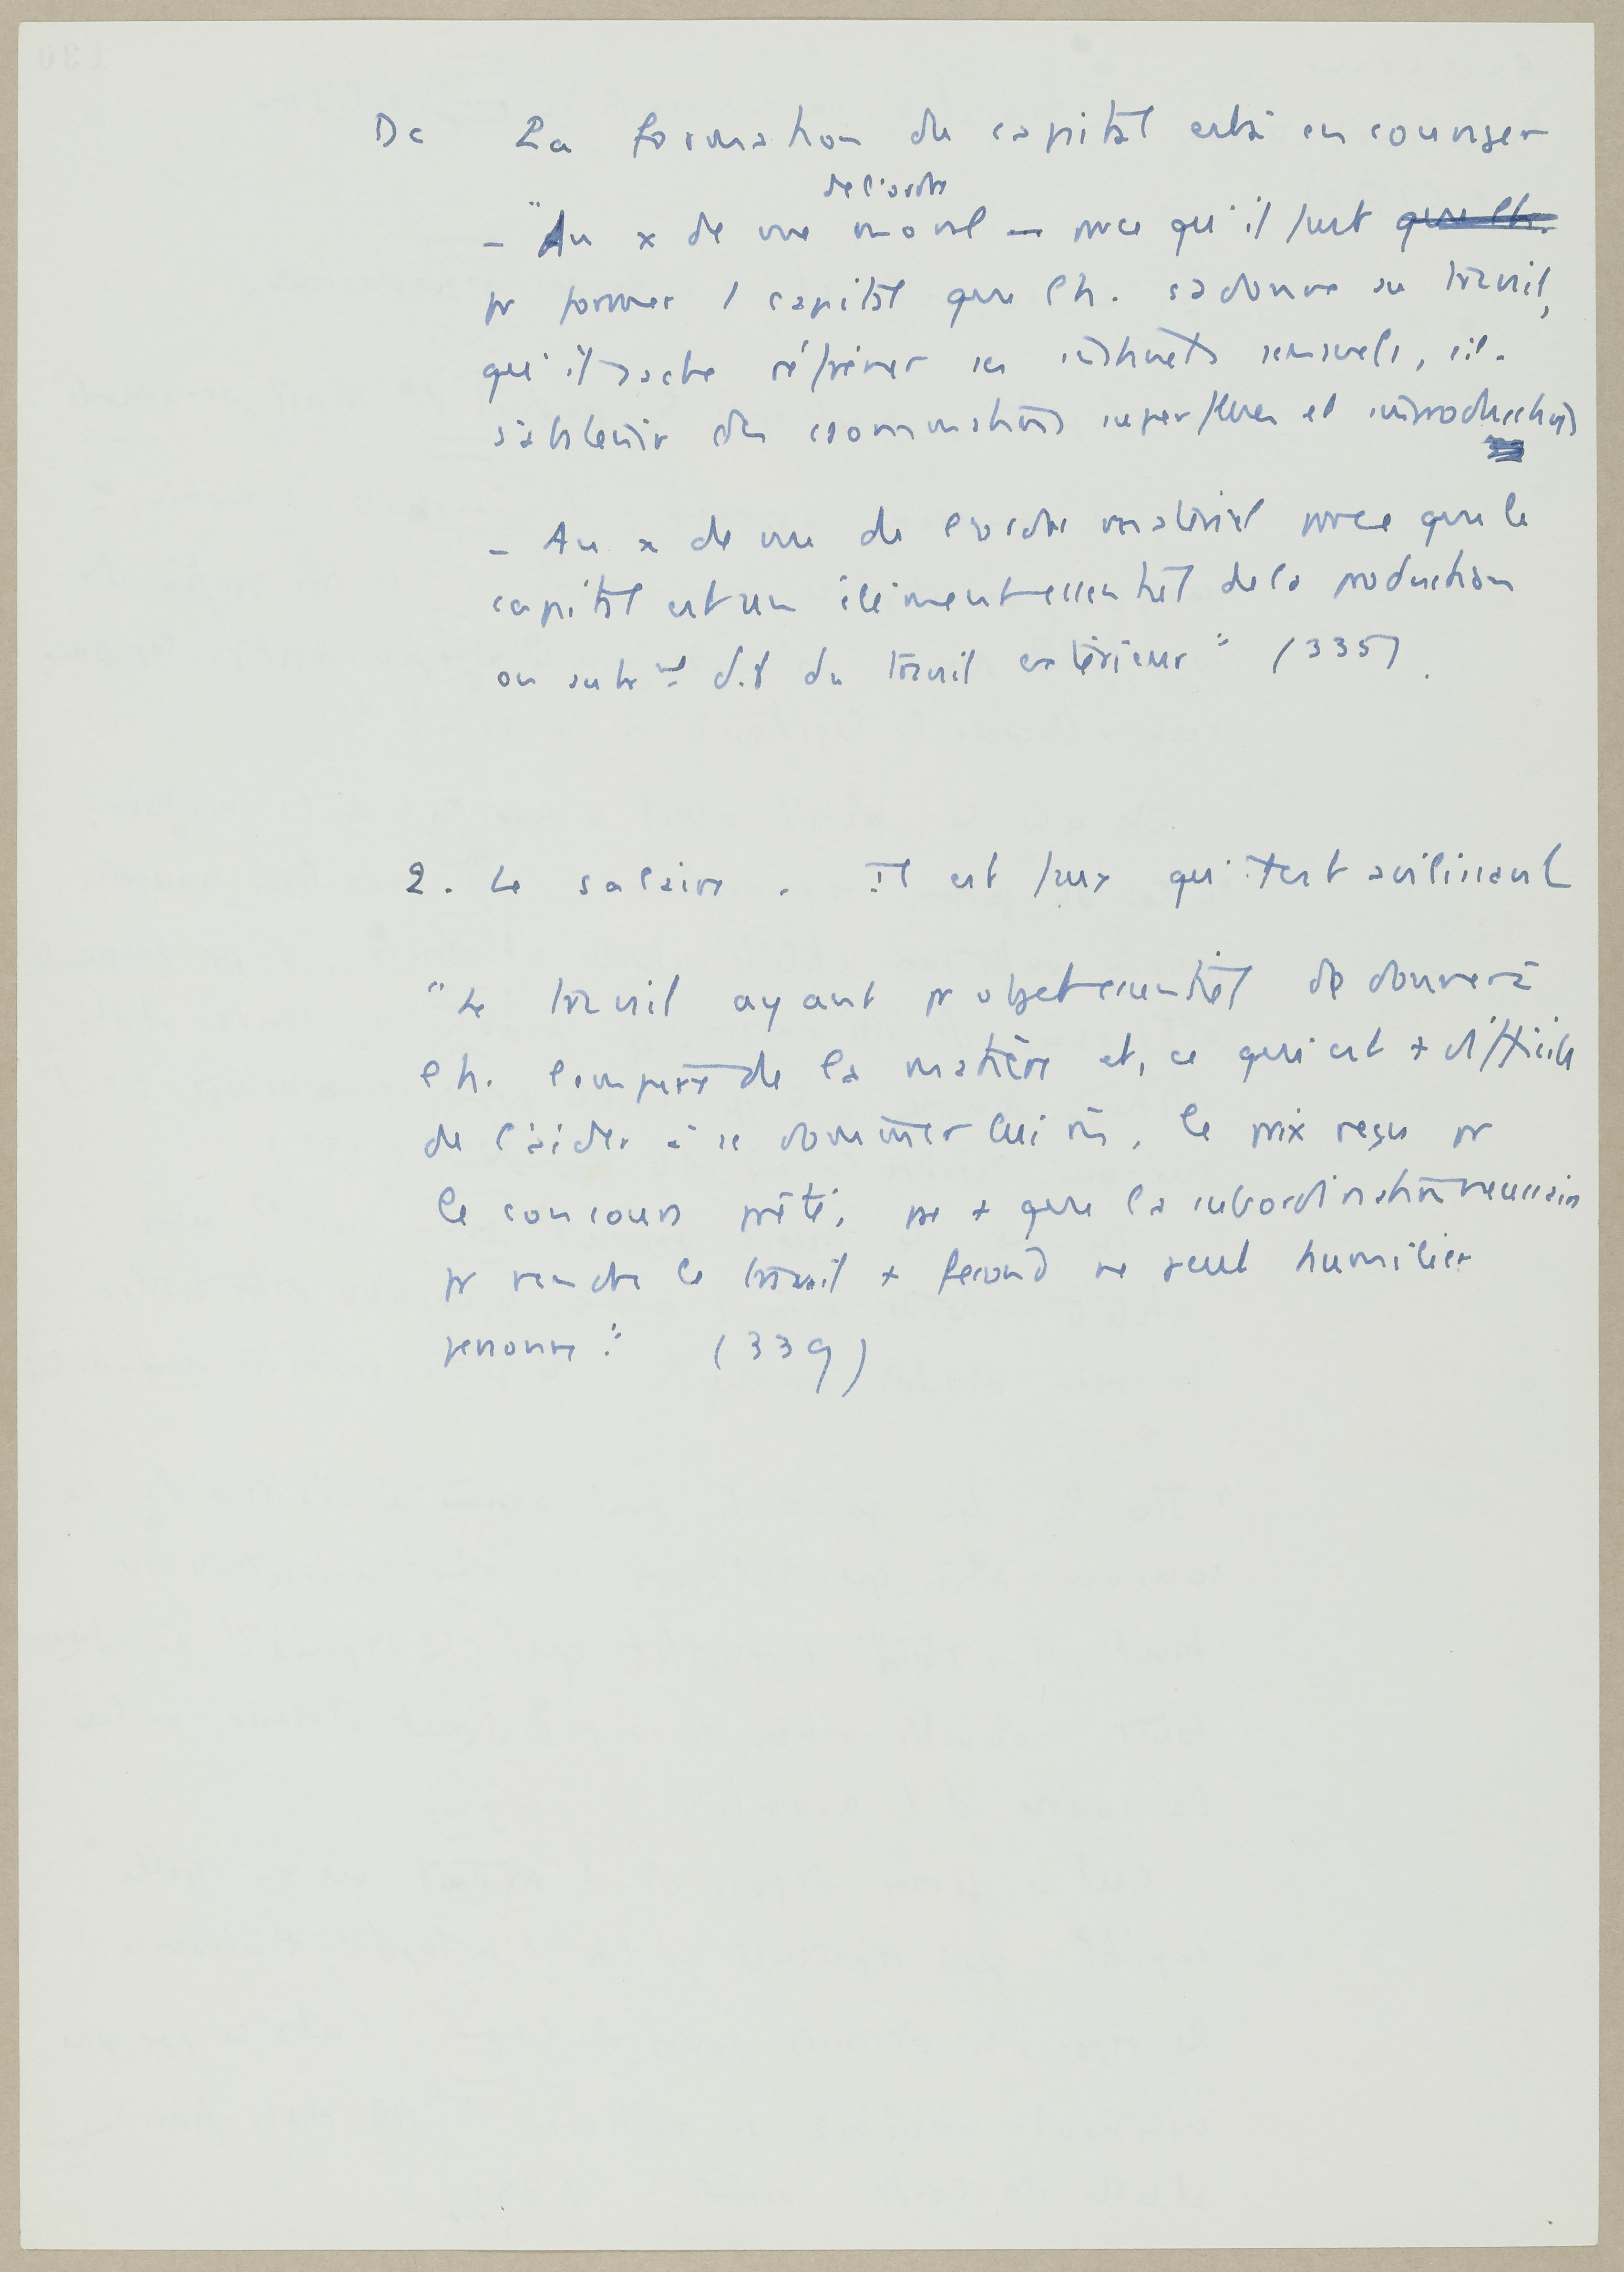 Dc La formation du capital est à encourager
de l'ordre
- "Au x de vue moral — parce qu'il faut que l'h.
pr former 1 capital que l'h. s'adonne au travail,
qu'il sache réfréner ses instincts sensuels, et
s'abstenir des consommations superflues et improductives
- Au x de vue de l'ordre matériel parce que le
capital est un élément essentiel de la production
ou autrmt dit du travail extérieur" (335).
2. Le salaire. Il est faux qu'il est avilissant
"Le travail ayant pr objet essentiel de donner à
l'h. l'empire de la matière et, ce qui est + difficile
de l'aider à se dominer lui m̄, le prix reçu pr
le concours prêté, pas + que la subordination nécessaire
pr rendre le travail + fécond ne peut humilier
personne". (339)